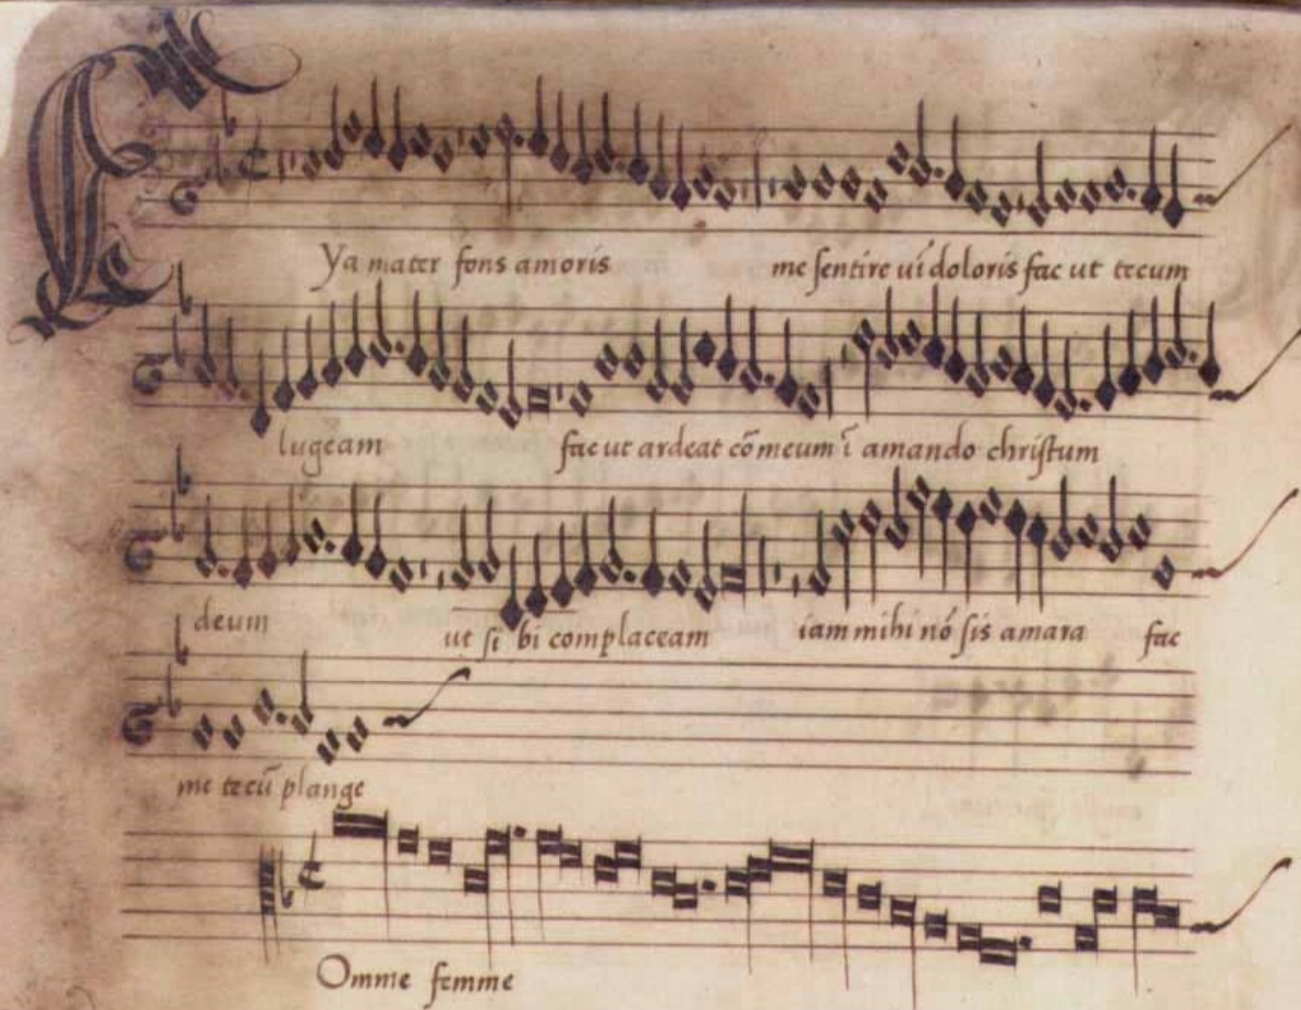 Eya mater fons amoris me sentire uĩ doloris fac ut tecum
lugeam fac ut ardeat cõ meum ĩ amando christum
deum ut si bi complaceam iam mihi nõ sis amara fac
me tecũ plange
Comme femme